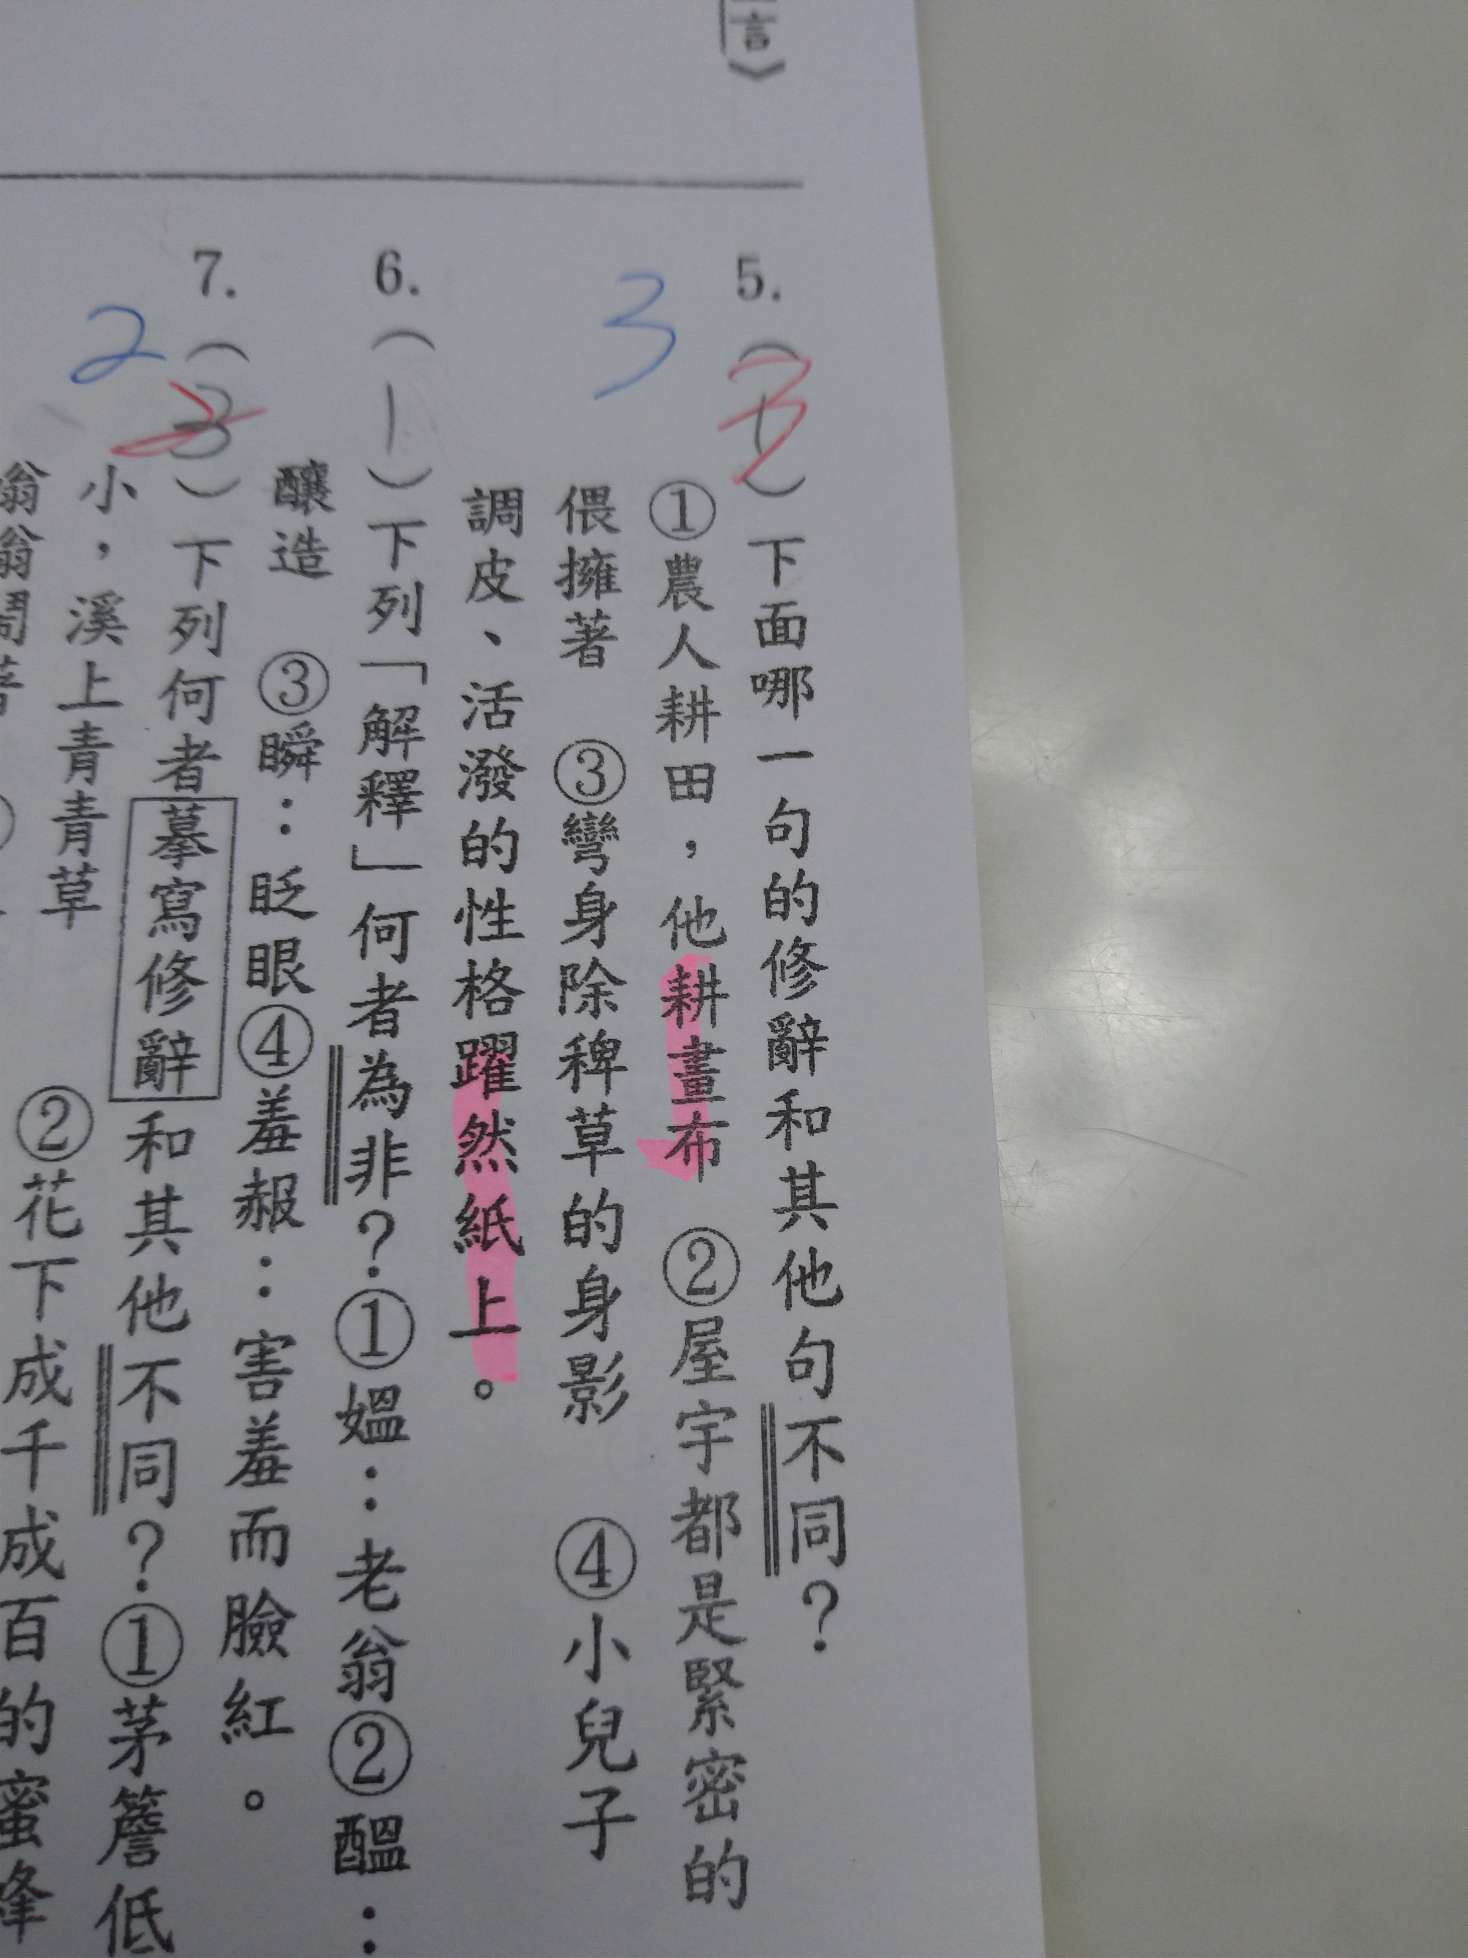 言》
5.(1)下面哪一句的修辭和其他句不同？
3
①農人耕田，他耕畫布 ②屋宇都是緊密的
偎擁著 ③彎身除稗草的身影 ④小兒子
調皮、活潑的性格躍然紙上。
6.(1)下列「解釋」何者為非？①媼：老翁②醞：
釀造 ③瞬：眨眼④羞赧：害羞而臉紅。
7.(3)下列何者摹寫修辭和其他不同？①茅簷低
2
小，溪上青青草 ②花下成千成百的蜜蜂
嗡嗡鬧著